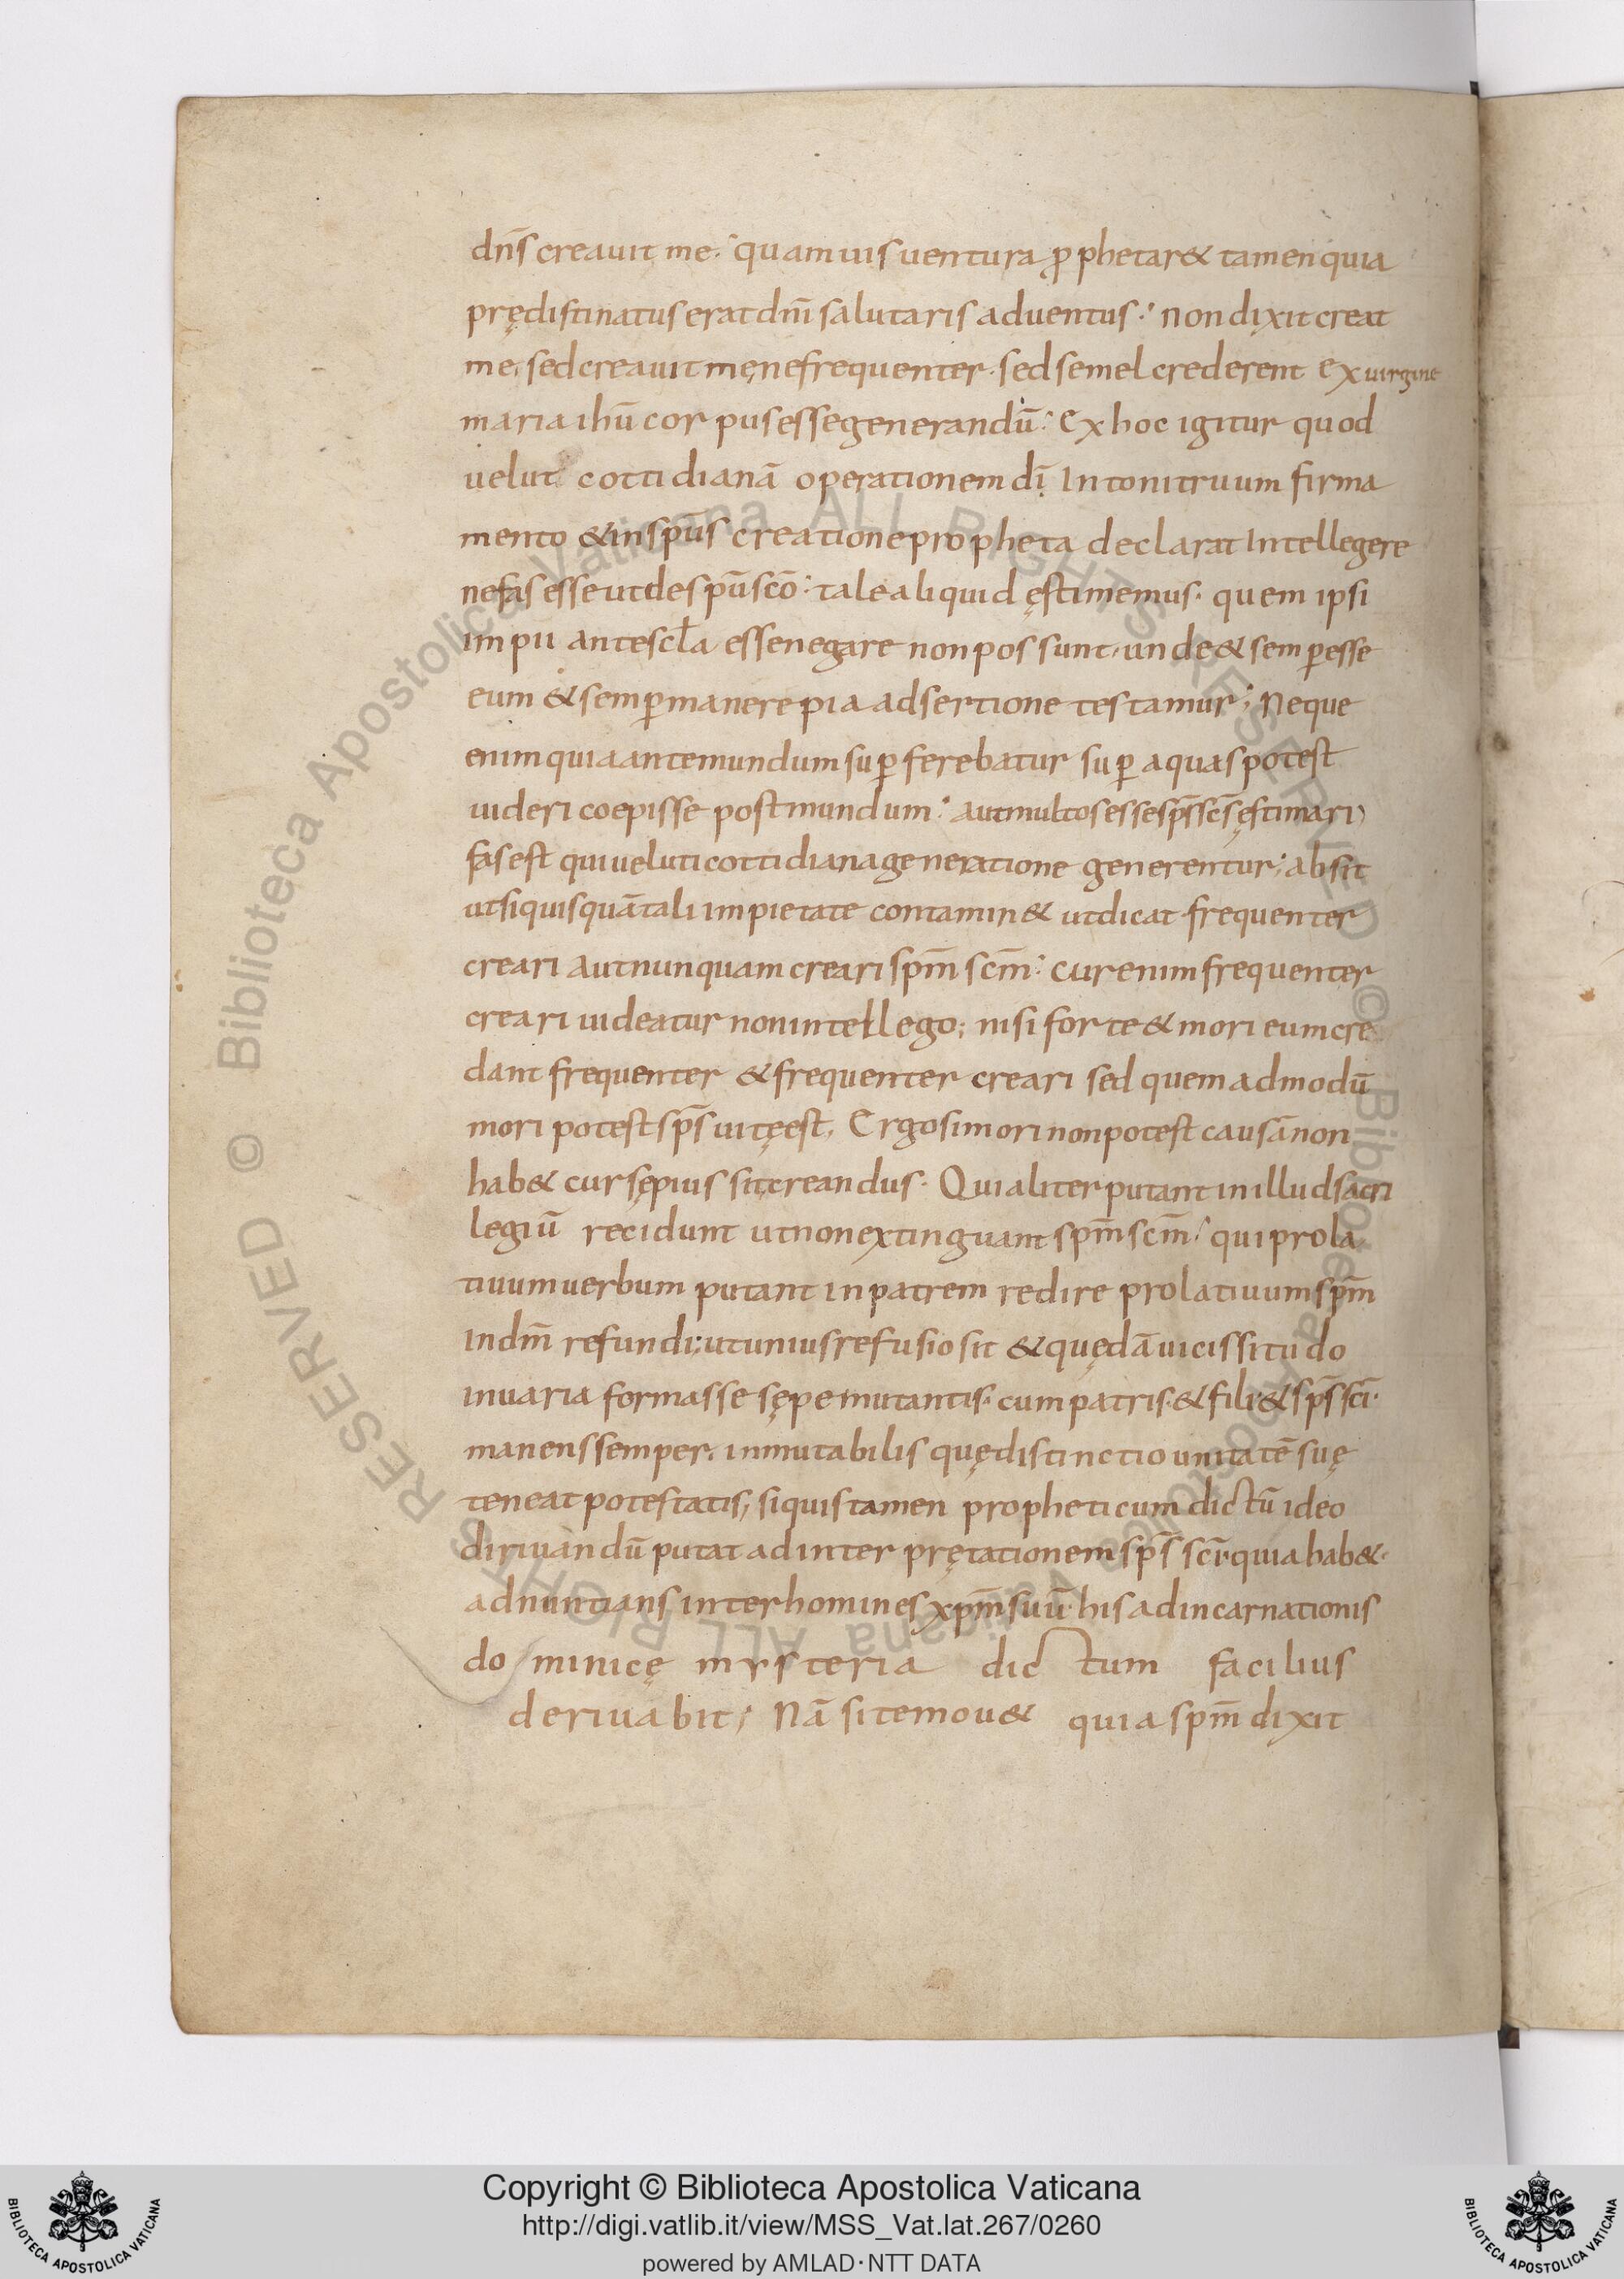 dn̄s creauit me. quamuis uentura ꝓphetar& tamen quia
prędistinatus erat dn̄i salutaris aduentus. non dixit creat
me, sed creauit me ne frequenter. sed semel crederent ex uirgine
maria ihū corpus esse generandū. Ex hoc igitur quod
uelut cottidianā operationem dī In tonitruum firma
mento & in sp̄us creatione propheta declarat Intellegere
nefas esse ut de sp̄u sc̄o. tale aliquid ęstimemus. quem ipsi
impii ante scl̄a esse negare non possunt, unde & semꝑ esse
eum & semꝑ manere pia adsertione testamur; Neque
enim quia ante mundum suꝑferebatur suꝑ aquas potest
uideri coepisse post mundum. aut multos esse sp̄s sc̄s ęstimari
fas est qui ueluti cottidiana generatione generentur; absit
ut si quisquā tali impietate contamin& ut dicat frequenter
creari aut nunquam creari sp̄m sc̄m. cur enim frequenter
creari uideatur non intellego; nisi forte & mori eum cre
dant frequenter & frequenter creari sed quemadmodū
mori potest sp̄s uitę est, Ergo si mori non potest causā non
hab& cur sępius sit creandus. Qui aliter putant in illud sacri
legiū recidunt ut non extinguant sp̄m sc̄m. qui prola
tiuum uerbum putant in patrem redire prolatiuum sp̄m
In dm̄ refundi; ut unius refusio sit & quędā uicissitudo
in uaria formas se sępe mutantis. cum patris. & fili & sp̄s sc̄i.
manens semper. inmutabilis quę distinctio unitatē suę
teneat potestatis; si quis tamen propheticum dictū ideo
diriuandū putat ad interprętationem sp̄s sc̄i. quia hab&.
adnuntians inter homines xp̄m suū. his ad incarnationis
dominicę mysteria dictum facilius
deriuabit; Nā si te mou& quia sp̄m dixit
© Biblioteca Apostolica Vaticana ALL RIGHTS RESERVED © Biblioteca Apostolica Vaticana ALL RIGHTS RESERVED
Copyright © Biblioteca Apostolica Vaticana
http://digi.vatlib.it/view/MSS_Vat.lat.267/0260
powered by AMLAD·NTT DATA
BIBLIOTECA APOSTOLICA VATICANA
BIBLIOTECA APOSTOLICA VATICANA